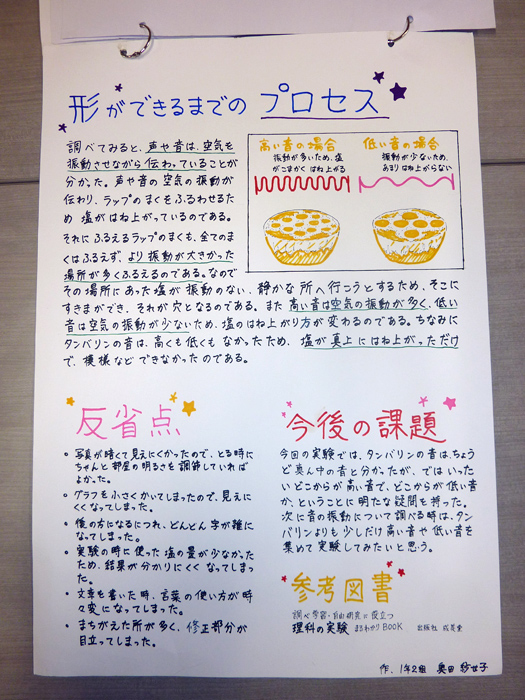 形ができるまでの プロセス
調べてみると、声や音は、空気を
振動させながら伝わっていることが
分かった。声や音の空気の振動が
伝わり、ラップのまくをふるわせるた
め 塩がはね上がっているのである。
それに ふるえるラップのまくも、全てのま
くはふるえず、より振動が大きかった
場所が多くふるえるのである。なので
その場所にあった塩が振動のない、静かな 所へ行こうとするため、そこに
すきまができ、それが穴となるのである。また 高い音は空気の振動が多く、低い
音は空気の振動が少ないため、塩のはね上がり方が変わるのである。ちなみに
タンバリンの音は、高くも低くも なかったため、塩が真上にはね上がっただけ
で、模様など できなかったのである。
高い音の場合
振動が多いため、塩
がこまかくはね上がる
低い音の場合
振動が少ないため、
あまりはね上がらない
反省点
• 写真が暗くて見えにくかったので、とる時に
ちゃんと部屋の明るさを調節していれば
よかった。
• グラフを小さくかいてしまったので、見えに
くくなってしまった。
• 後の方になるにつれ、どんどん字が雑に
なってしまった。
• 実験の時に使った塩の量が少なかった
ため、結果が分かりにくくなってしまっ
た。
• 文章を書いた時、言葉の使い方が時
々変になってしまった。
• まちがえた所が多く、修正部分が
目立ってしまった。
今後の課題
今回の実験では、タンバリンの音は、ちょう
ど真ん中の音と分かったが、では いったい
どこからが高い音で、どこからが低い音
か、ということに明たな疑問を持った。
次に音の振動について調べる時は、タン
バリンよりも少しだけ高い音や低い音を
集めて実験してみたいと思う。
参考図書
調べ学習・自由研究に役立つ
理科の実験 まるわかりBOOK 出版社 成美堂
作、1年2組 奥田 紗世子